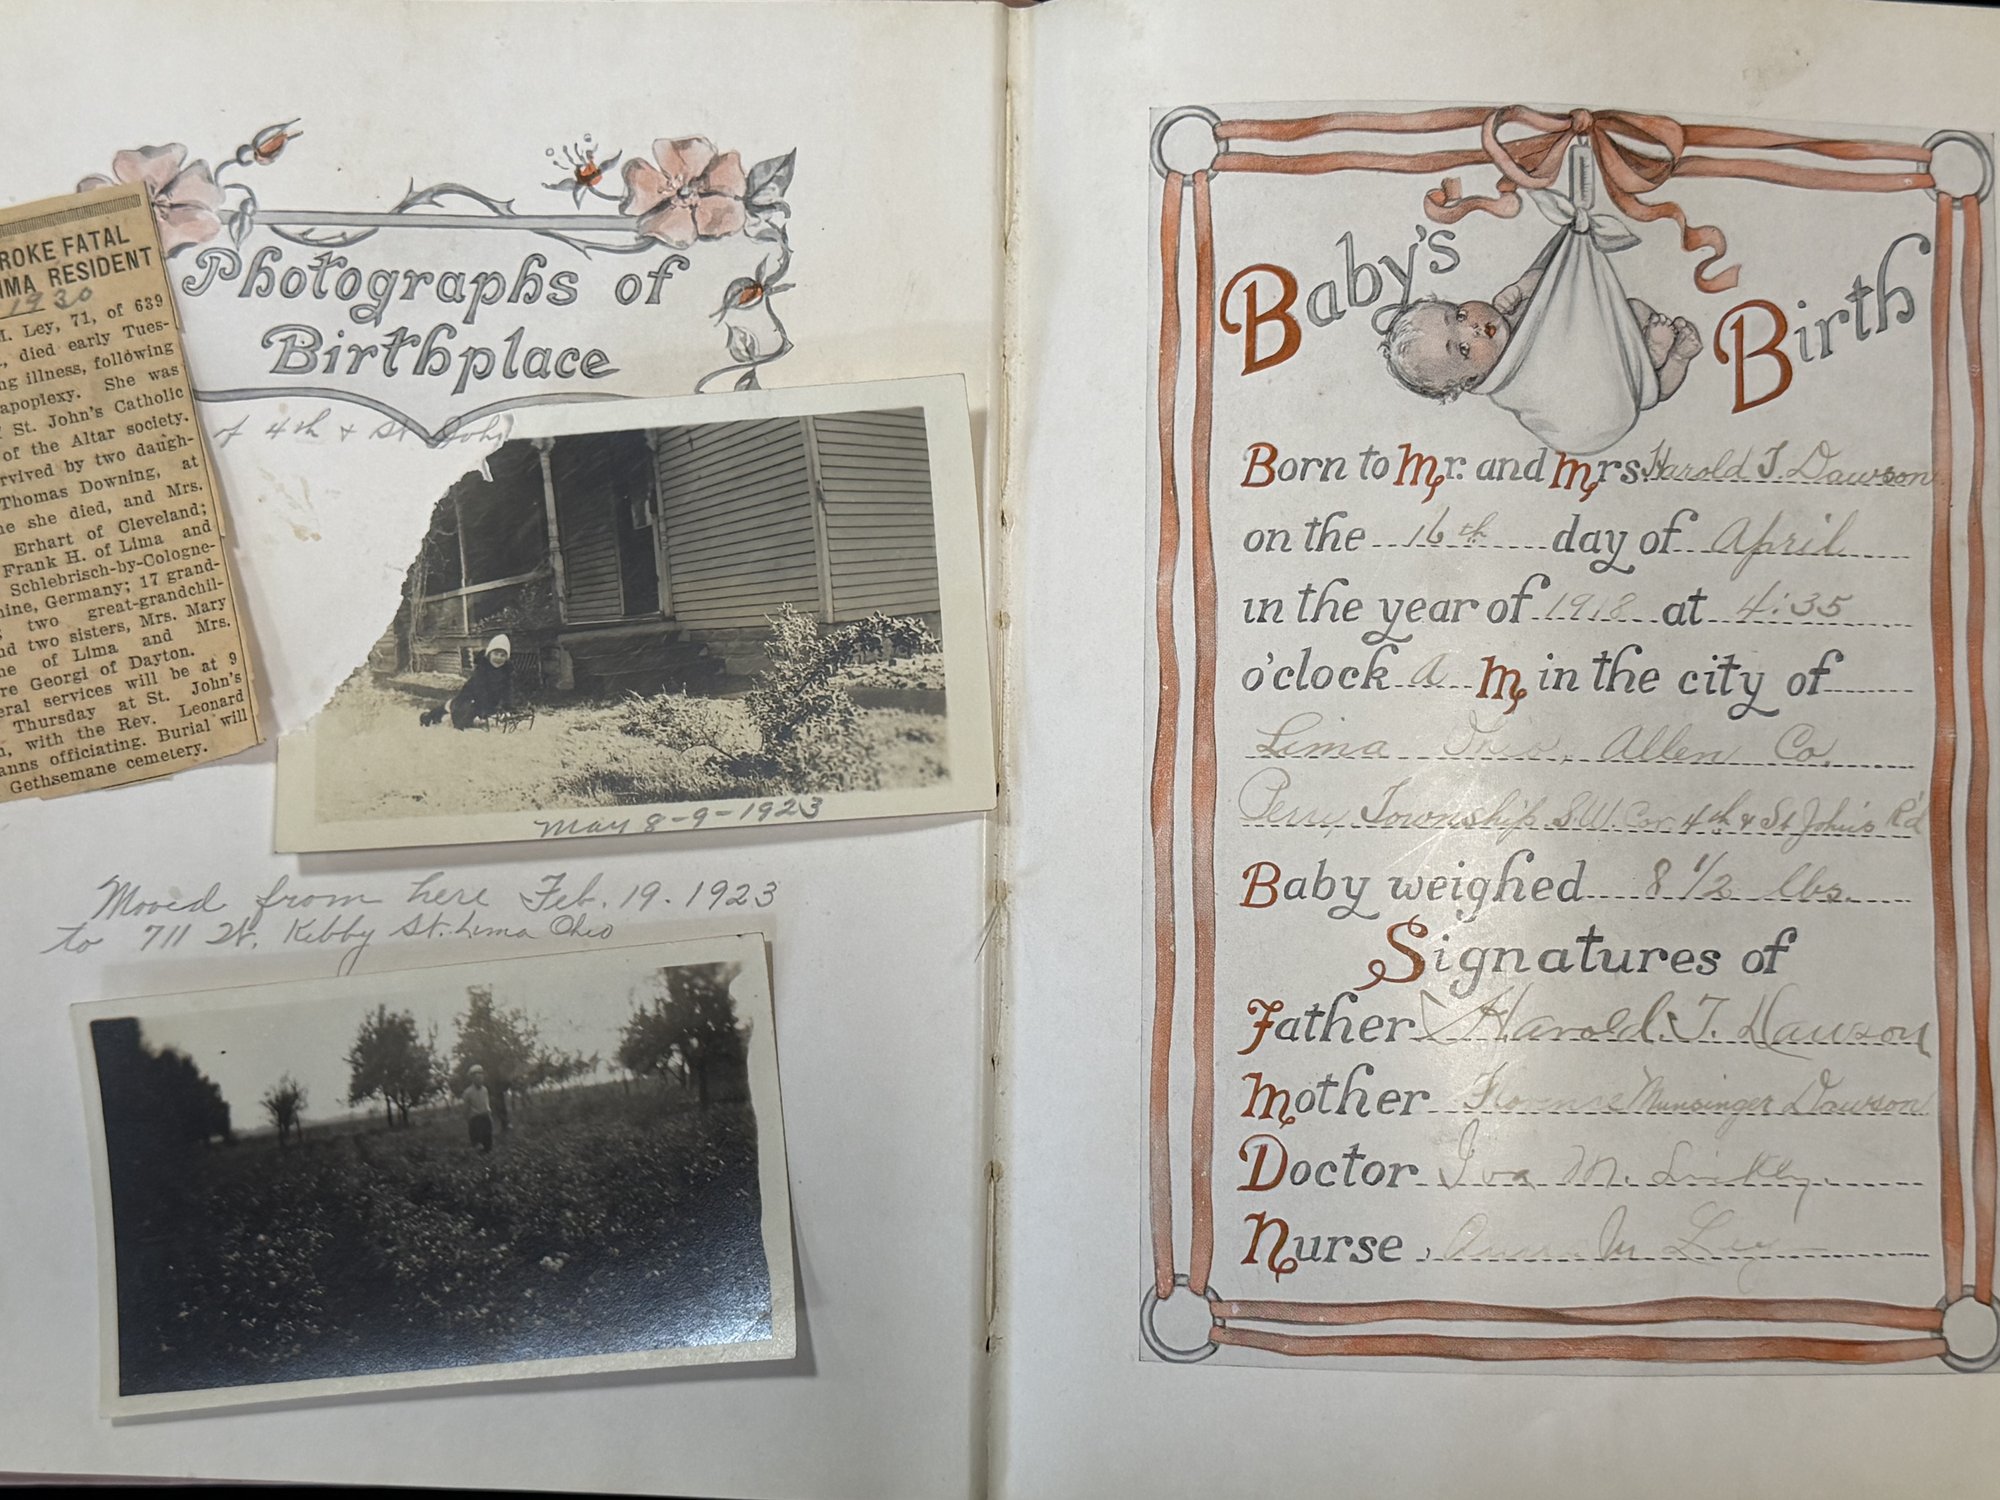 ROKE FATAL
IMA RESIDENT
1930
M. Ley, 71, of 639
., died early Tues-
ng illness, following
apoplexy. She was
St. John's Catholic
of the Altar society.
rvived by two daugh-
Thomas Downing, at
me she died, and Mrs.
Erhart of Cleveland;
Frank H. of Lima and
Schlebrisch-by-Cologne-
hine, Germany; 17 grand-
two great-grandchil-
nd two sisters, Mrs. Mary
ne of Lima and Mrs.
re Georgi of Dayton.
eral services will be at 9
Thursday at St. John's
h, with the Rev. Leonard
anns officiating. Burial will
Gethsemane cemetery.
Photographs of
Birthplace
of 4th & St. John
May 8-9-1923
Moved from here Feb. 19. 1923
to 711 W. Kibby St. Lima Ohio
Baby's Birth
Born to Mr. and Mrs. Harold T. Dawson
on the 16th day of April
in the year of 1918 at 4:35
o'clock A M in the city of
Lima Ohio, Allen Co.
Perry Township S.W. Cor. 4th & St John's R'd
Baby weighed 8 1/2 lbs.
Signatures of
Father Harold T. Dawson
Mother Florence Munsinger Dawson
Doctor Iva M.
Nurse Anna M Ley